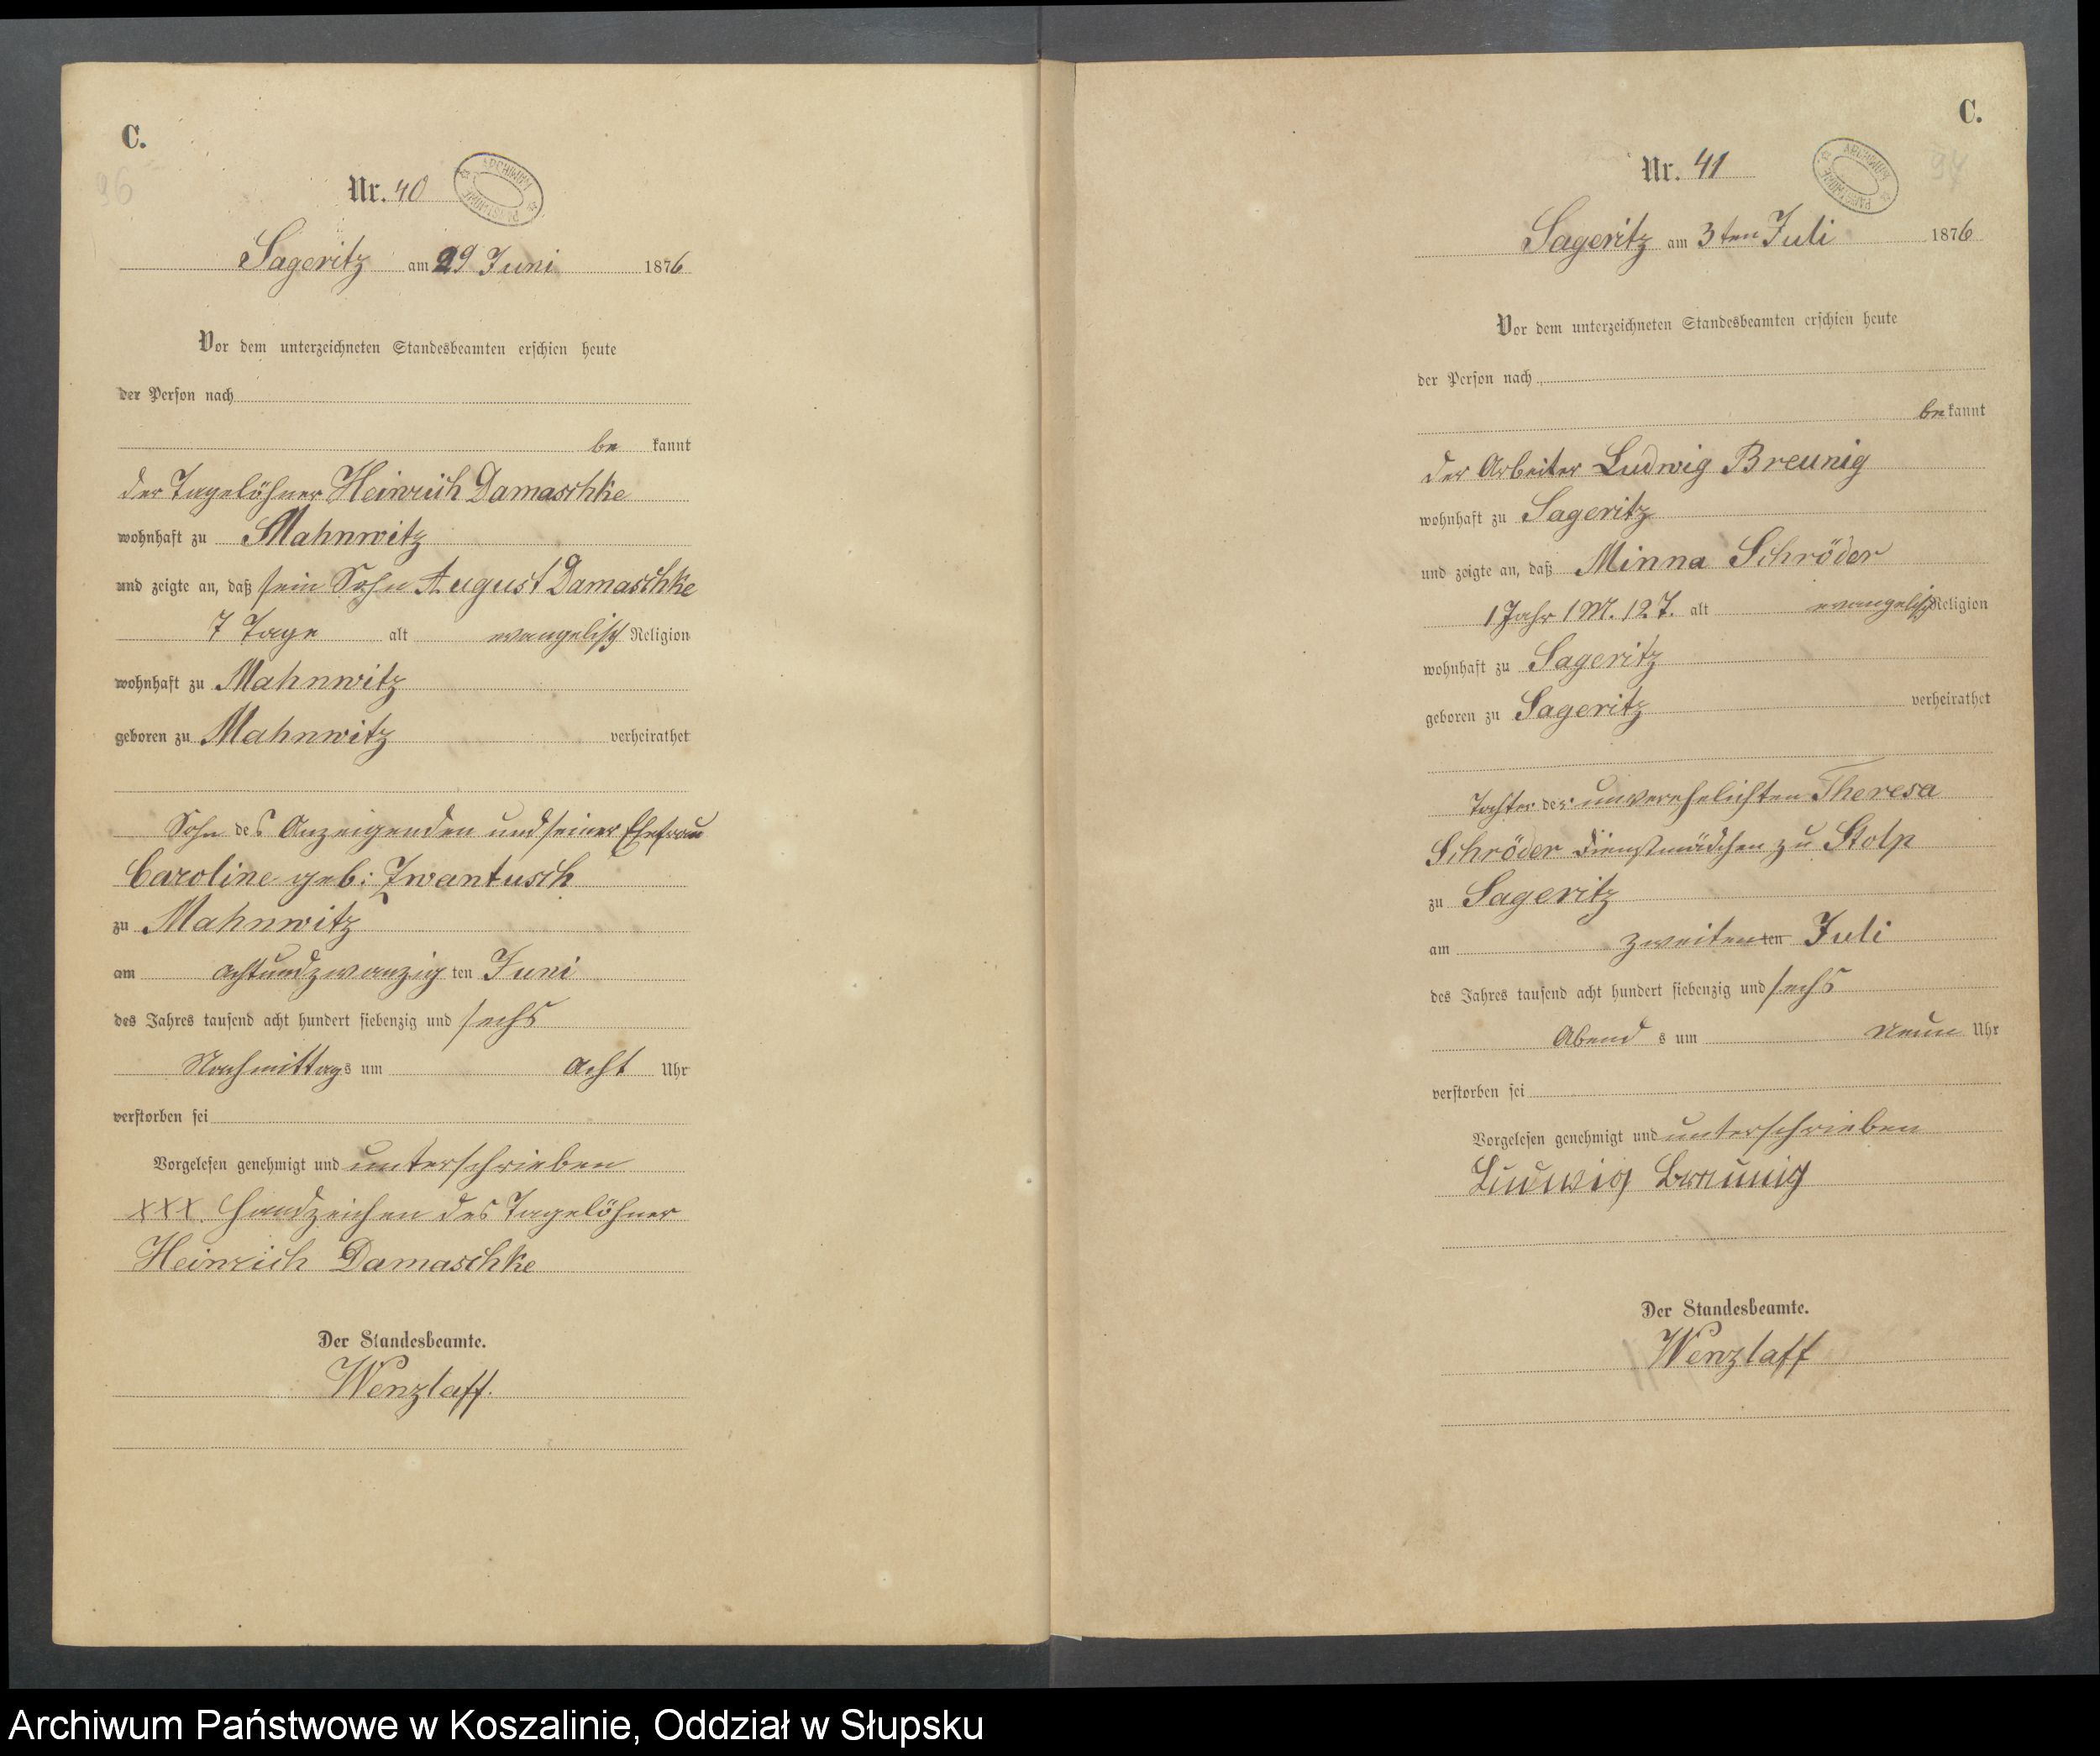 C.
96
Nr. 40
ARCHIWUM PAŃSTWOWE
Sageritz am 29 Juni 1876
Vor dem unterzeichneten Standesbeamten erschien heute
der Person nach
be kannt
der Tagelöhner Heinrich Damaschke
wohnhaft zu Mahnwitz
und zeigte an, daß sein Sohn August Damaschke
7 Tage alt evangelisch Religion
wohnhaft zu Mahnwitz
geboren zu Mahnwitz verheirathet
Sohn des Anzeigenden und seiner Ehefrau
Caroline geb: Zwantusch
zu Mahnwitz
am achtundzwanzig ten Juni
des Jahres tausend acht hundert siebenzig und sechs
Nachmittags um acht Uhr
verstorben sei
Vorgelesen genehmigt und unterschrieben
XXX. Handzeichen des Tagelöhner
Heinrich Damaschke
Der Standesbeamte.
Wenzlaff.
C.
97
Nr. 41
ARCHIWUM PAŃSTWOWE
Sageritz am 3ten Juli 1876
Vor dem unterzeichneten Standesbeamten erschien heute
der Person nach
be kannt
der Arbeiter Ludwig Breunig
wohnhaft zu Sageritz
und zeigte an, daß Minna Schröder
1 Jahr 1 M. 12 T. alt evangelisch Religion
wohnhaft zu Sageritz
geboren zu Sageritz verheirathet
Tochter der unverehelichten Theresa
Schröder Dienstmädchen zu Stolp
zu Sageritz
am zweiten ten Juli
des Jahres tausend acht hundert siebenzig und sechs
Abend s um Neun Uhr
verstorben sei
Vorgelesen genehmigt und unterschrieben
Ludwig Breunig
Der Standesbeamte.
Wenzlaff
Archiwum Państwowe w Koszalinie, Oddział w Słupsku